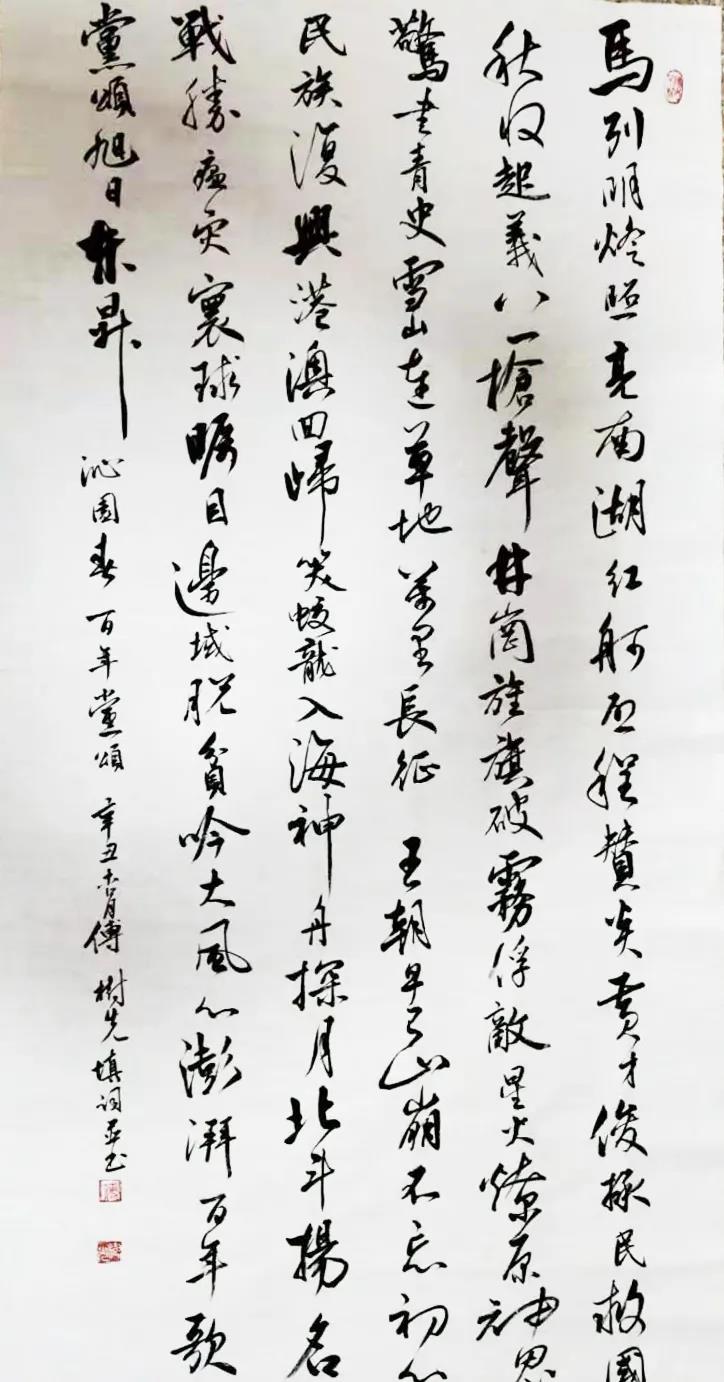 馬列明燈照亮南湖紅舸啟程贊炎黄才俊拯民救國
秋收起義八一槍聲井崗旌旗破霧俘敵星火燎原神鬼
驚書青史雪山連草地萬里長征 王朝早已山崩不忘初心
民族復興港澳回歸笑蛟龍入海神舟探月北斗揚名
戰勝瘟灾寰球矚目邊域脱貧吟大風心澎湃百年歌
黨頌旭日東昇
沁園春 百年黨頌 辛丑月傅樹先填詞並書